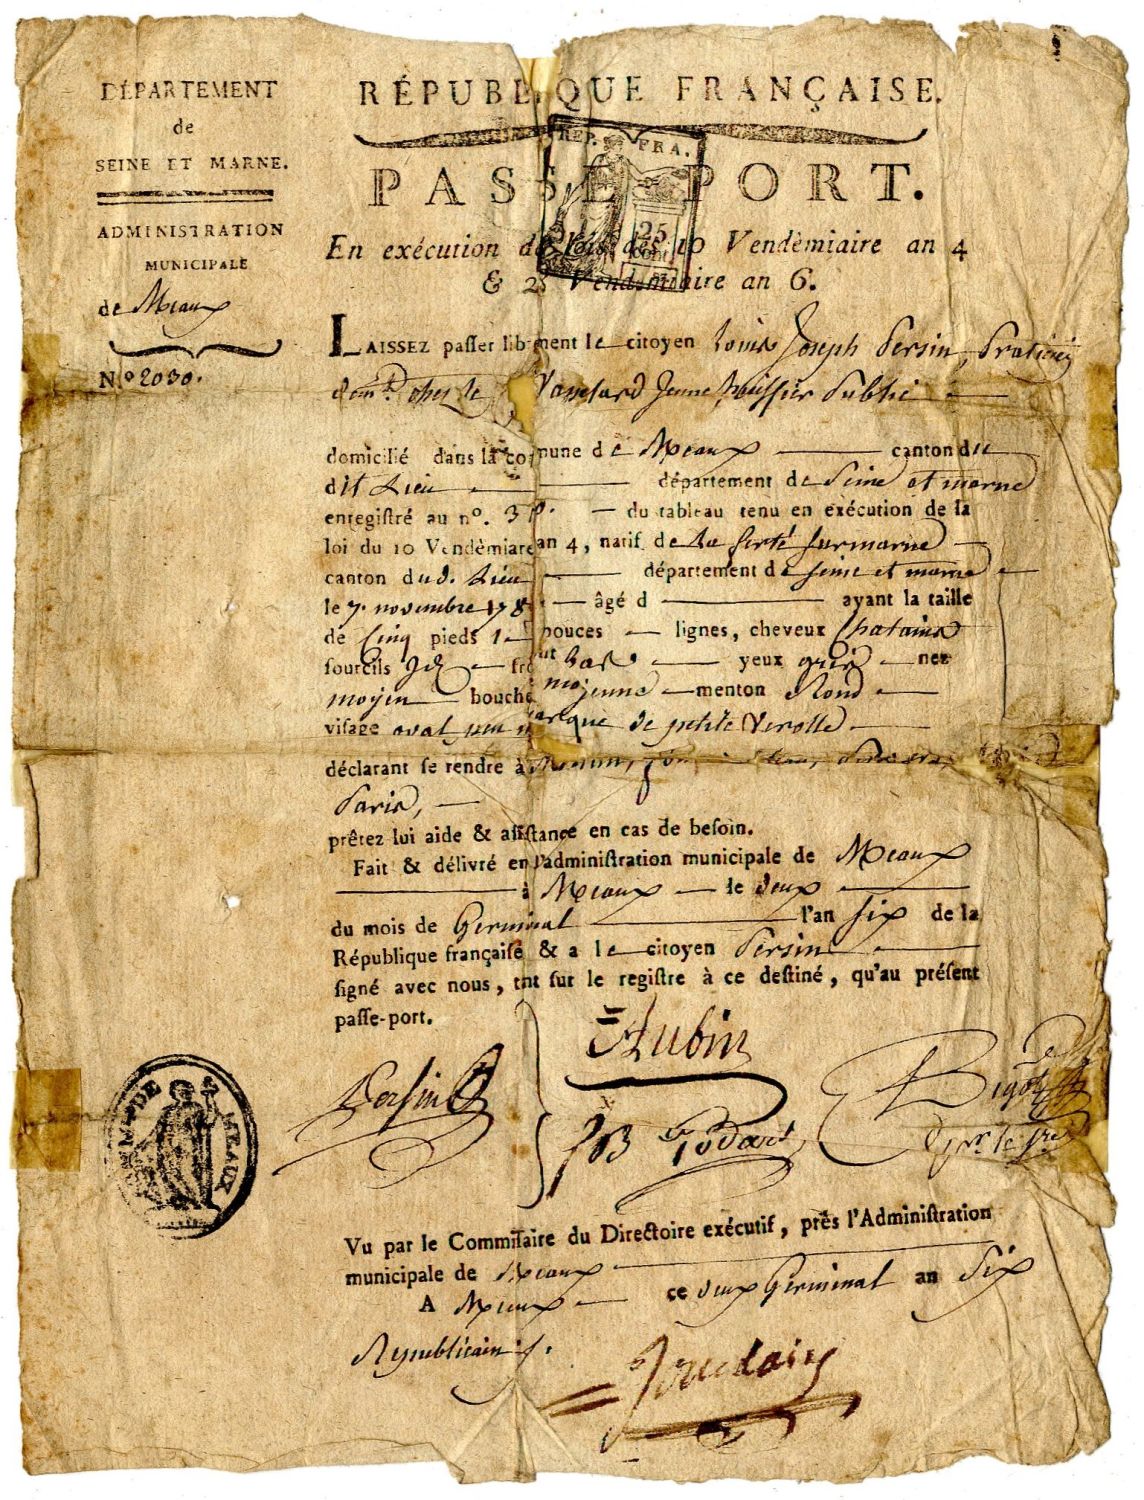 DÉPARTEMENT
de
SEINE ET MARNE.
ADMINISTRATION
MUNICIPALE
de Meaux
N.º 2030.
RÉPUBLIQUE FRANÇAISE.
REP. FRA.
25
cent.
PASSE-PORT.
En exécution de lois des 10 Vendèmiaire an 4
& 2 Vendémiaire an 6.
LAISSEZ passer librement le citoyen Louis Joseph Persin, Praticien
dem.t chez le Vasselard Jeune huissier Public
domicilié dans la commune de Meaux canton du
dit Lieu département de Seine et marne
enregistré au nº. 3 du tableau tenu en exécution de la
loi du 10 Vendèmiare an 4, natif de La ferté surmarne
canton dud. Lieu département de seine et marne
le 7. novembre 178 âgé d ayant la taille
de Cinq pieds 1 pouces lignes, cheveux Chatains
sourcils Id front bas yeux gris nez
moyen bouche moyenne menton Rond
visage oval peu marqué de petite Verolle
déclarant se rendre à
Paris,
prêtez lui aide & assistance en cas de besoin.
Fait & délivré en l'administration municipale de Meaux
à Meaux le deux
du mois de Germinal l'an six de la
République française & a le citoyen Persin
signé avec nous, tnt sur le registre à ce destiné, qu'au présent
passe-port.
Aubin
Persin
Godart
Bigot
MEAUX
Vu par le Commissaire du Directoire exécutif, près l'Administration
municipale de Meaux
A Meaux ce deux Germinal an Six
Republicain